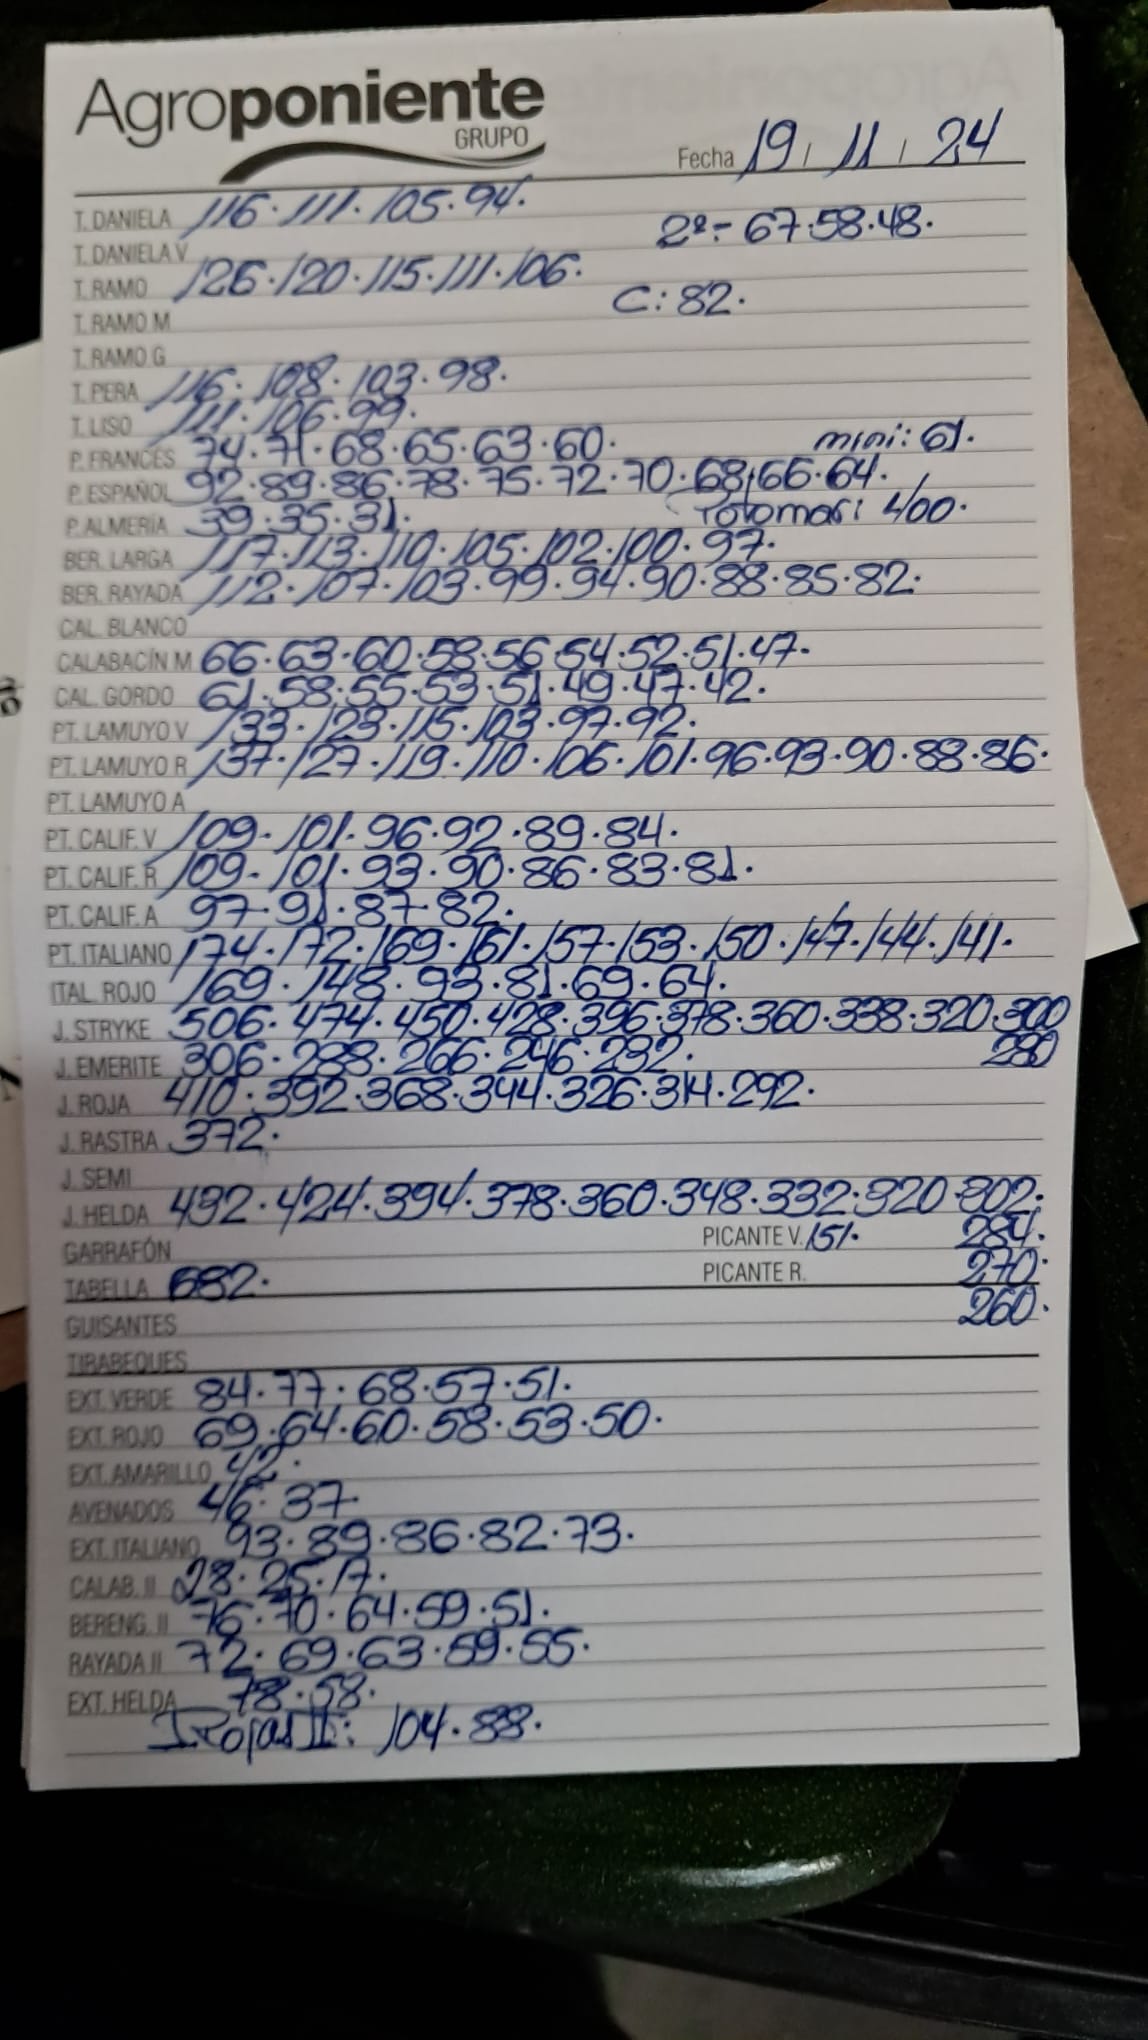 Agroponiente
GRUPO
Fecha 19 / 11 / 24
T. DANIELA 116. 111. 105. 94.
2ª- 67.58.48.
T. DANIELA V
T. RAMO 126.120.115.111.106.
C: 82.
T. RAMO M
T. RAMO G
T. PERA 116. 108. 103. 98.
T. LISO 111. 106. 99.
P. FRANCÉS 74.71.68.65.63.60. mini: 61.
P. ESPAÑOL 92.89.86.78.75.72.70.68.66.64.
P. ALMERÍA 39.35.31. 400.
BER. LARGA 117.113.110.105.102.100.97.
BER. RAYADA 112.107.103.99.94.90.88.85.82.
CAL. BLANCO
CALABACÍN M 66.63.60.58.56.54.52.51.47.
CAL. GORDO 61.58.55.53.51.49.47.42.
PT. LAMUYO V 133.123.115.103.97.92.
PT. LAMUYO R 137.127.119.110.106.101.96.93.90.88.86.
PT. LAMUYO A
PT. CALIF. V 109.101.96.92.89.84.
PT. CALIF. R 109.101.93.90.86.83.81.
PT. CALIF. A 97.91.87.82.
PT. ITALIANO 174.172.169.161.157.153.150.147.144.141.
ITAL. ROJO 169.148.93.81.69.64.
J. STRYKE 506.474.450.428.396.378.360.338.320.300
280
J. EMERITE 306.288.266.246.232.
J. ROJA 410.392.368.344.326.314.292.
J. RASTRA 372.
J. SEMI
J. HELDA 432.424.394.378.360.348.332.320.302.
GARRAFÓN PICANTE V. 151. 284.
TABELLA 682. PICANTE R. 270.
260.
GUISANTES
TIRABEQUES
EXT. VERDE 84.77.68.57.51.
EXT. ROJO 69.64.60.58.53.50.
EXT. AMARILLO 42.
AVENADOS 46.37
EXT. ITALIANO 93.89.86.82.73.
CALAB. II 28.25.17.
BERENG. II 76.70.64.59.51.
RAYADA II 72.69.63.59.55.
EXT. HELDA 78.58.
J. Rojas II: 104.88.